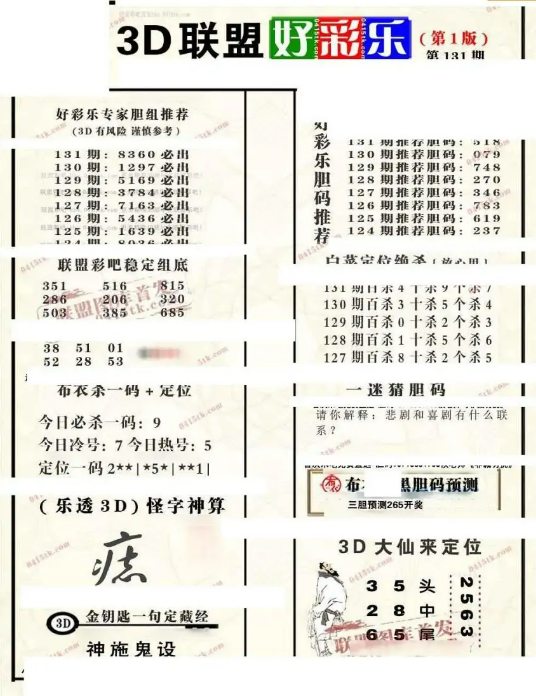 3D联盟好彩乐(第1版)
第131期
好彩乐专家胆组推荐
(3D有风险 谨慎参考)
131期: 8360必出
130期: 1297必出
129期: 5169必出
128期: 3784必出
127期: 7163必出
126期: 5436必出
125期: 1639必出
124期: 8026必出
联盟彩吧稳定组底
351 516 815
286 206 320
503 385 685
38 51 01
52 28 53
布衣杀一码+定位
今日必杀一码: 9
今日冷号: 7 今日热号: 5
定位一码 2**|*5*|**1|
(乐透3D)怪字神算
3D 金钥匙一句定藏经
神施鬼设
好彩乐胆码推荐
131期推荐胆码: 518
130期推荐胆码: 079
129期推荐胆码: 748
128期推荐胆码: 270
127期推荐胆码: 346
126期推荐胆码: 783
125期推荐胆码: 619
124期推荐胆码: 237
白菜定位绝杀(放心用)
131期百杀4十杀9个杀7
130期百杀3十杀5个杀4
129期百杀0十杀2个杀3
128期百杀1十杀5个杀6
127期百杀8十杀2个杀5
一谜猜胆码
请你解释: 悲剧和喜剧有什么联
系?
布 黑胆码预测
三胆预测265开奖
3D大仙来定位
3 5 头
2 8 中
6 5 尾
2563
联盟图库首发
0415tk.com